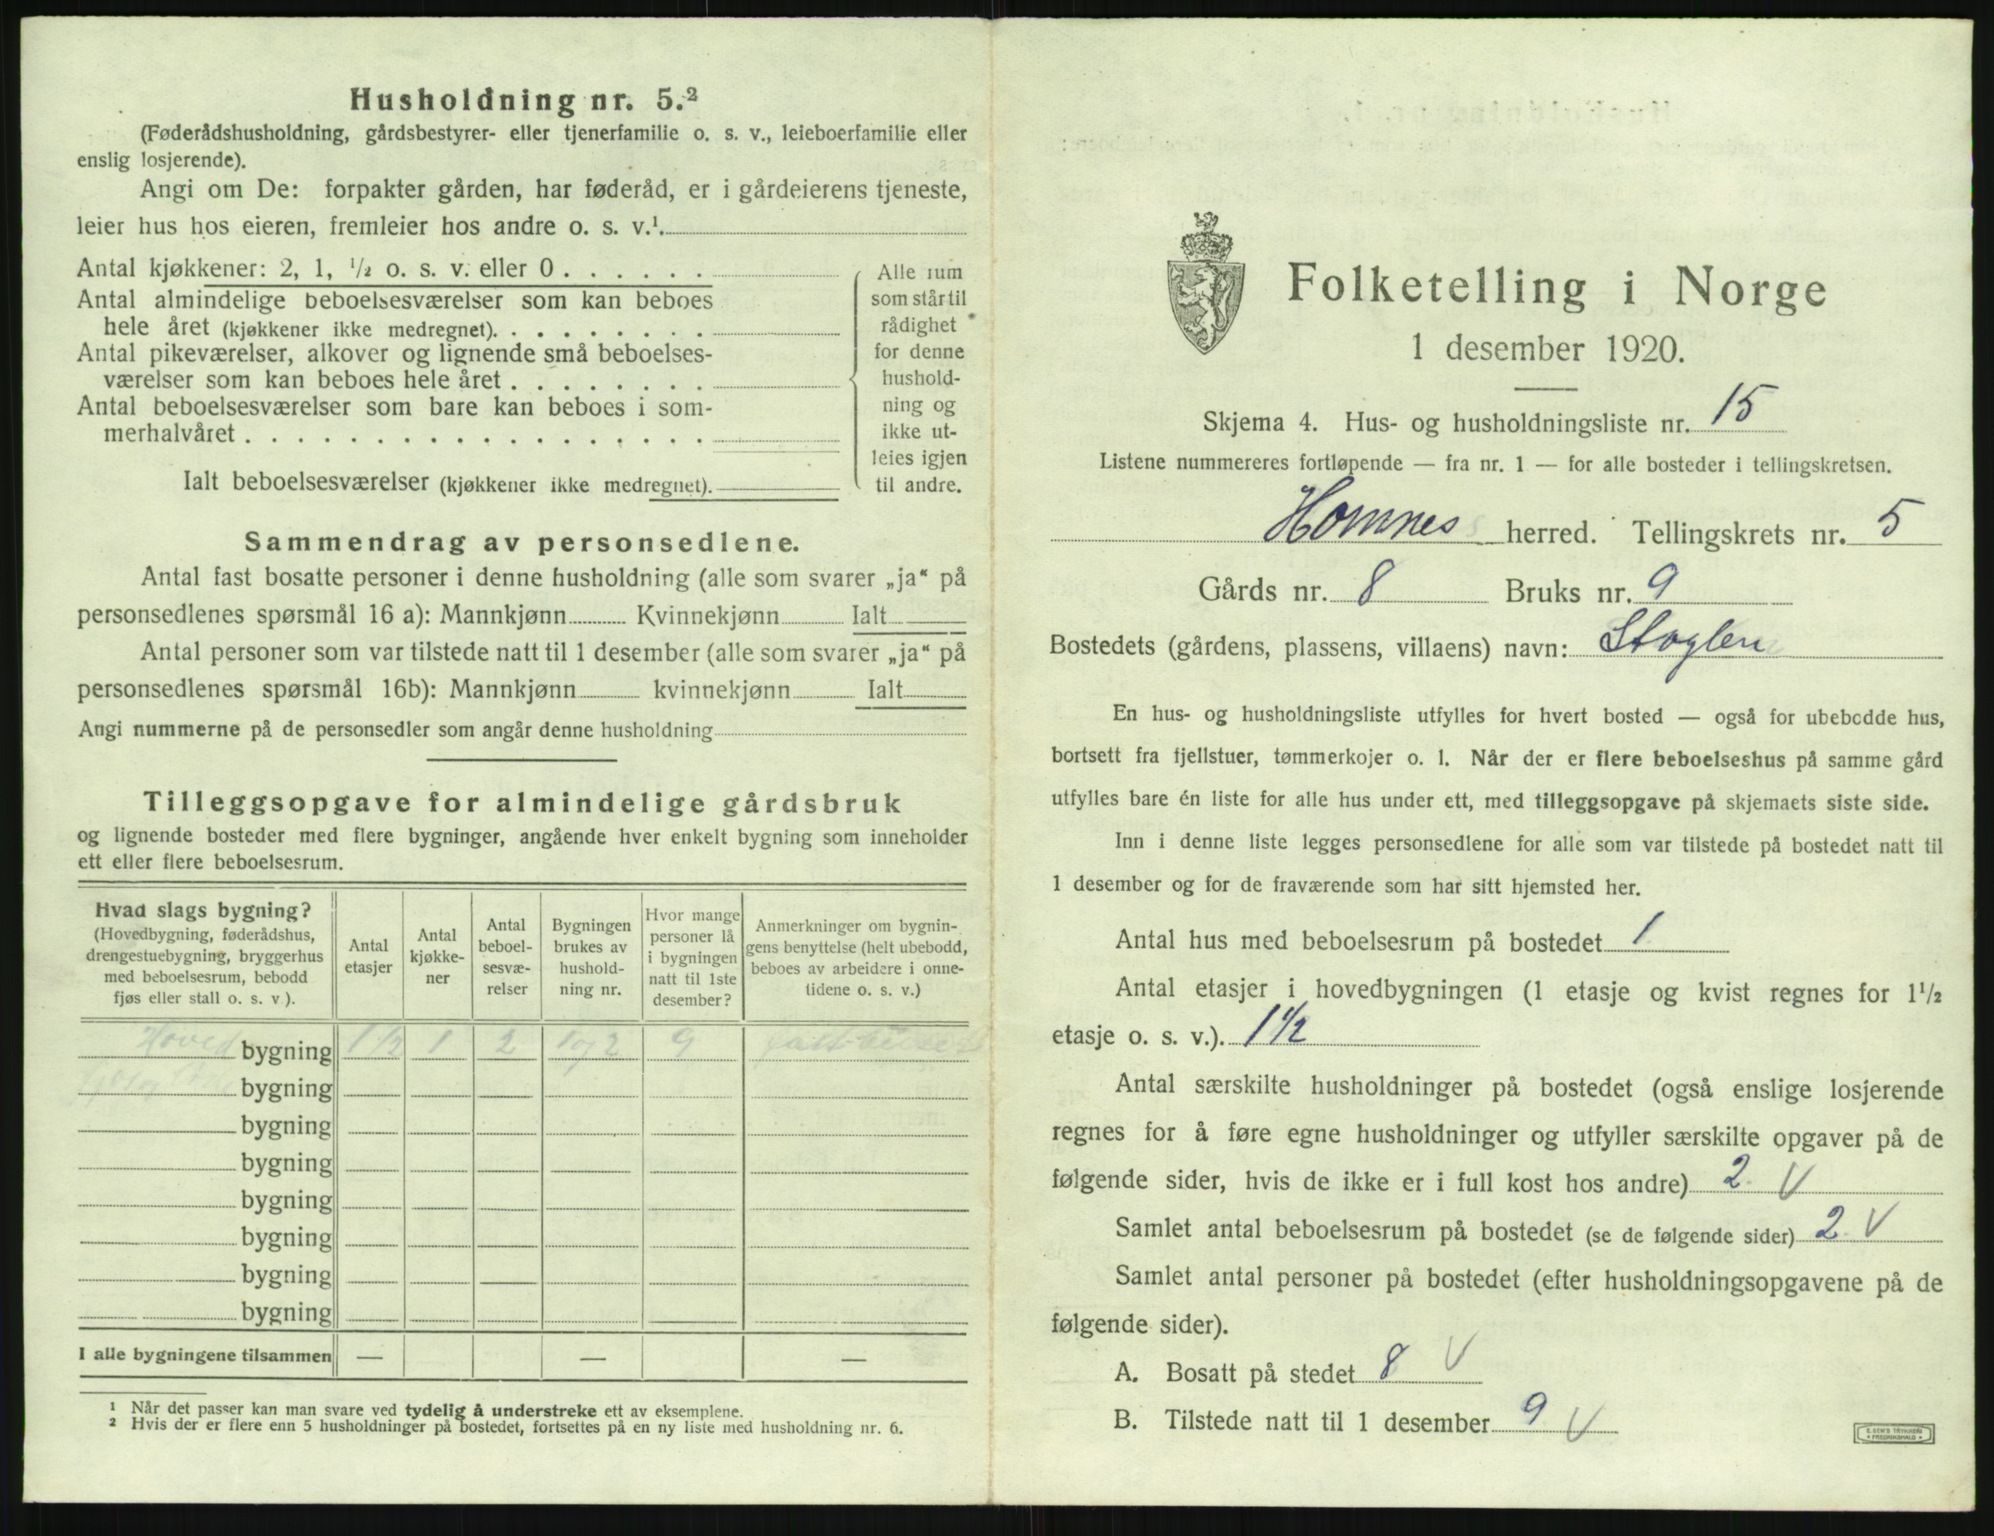 Husholdning nr. 5.²
(Føderådshusholdning, gårdsbestyrer- eller tjenerfamilie o. s. v., leieboerfamilie eller
enslig losjerende).
Angi om De: forpakter gården, har føderåd, er i gårdeierens tjeneste,
leier hus hos eieren, fremleier hos andre o. s. v.¹
Antal kjøkkener: 2, 1, ½ o. s. v. eller 0 . . . . . .
Antal almindelige beboelsesværelser som kan beboes
hele året (kjøkkener ikke medregnet). . . . . . . . .
Antal pikeværelser, alkover og lignende små beboelses-
værelser som kan beboes hele året . . . . . . . .
Antal beboelsesværelser som bare kan beboes i som-
merhalvåret . . . . . . . . . . . . . . . . . .
Ialt beboelsesværelser (kjøkkener ikke medregnet).
Alle rum
som står til
rådighet
for denne
hushold-
ning og
ikke ut-
leies igjen
til andre.
Sammendrag av personsedlene.
Antal fast bosatte personer i denne husholdning (alle som svarer „ja“ på
personsedlenes spørsmål 16 a): Mannkjønn Kvinnekjønn Ialt
Antal personer som var tilstede natt til 1 desember (alle som svarer „ja“ på
personsedlenes spørsmål 16b): Mannkjønn kvinnekjønn Ialt
Angi nummerne på de personsedler som angår denne husholdning
Tilleggsopgave for almindelige gårdsbruk
og lignende bosteder med flere bygninger, angående hver enkelt bygning som inneholder
ett eller flere beboelsesrum.
Hvad slags bygning?
(Hovedbygning, føderådshus,
drengestuebygning, bryggerhus
med beboelsesrum, bebodd
fjøs eller stall o. s. v ).
Antal
etasjer
Antal
kjøkke-
ner
Antal
beboel-
sesvæ-
relser
Bygningen
brukes av
hushold-
ning nr.
Hvor mange
personer lå
i bygningen
natt til 1ste
desember?
Anmerkninger om bygnin-
gens benyttelse (helt ubebodd,
beboes av arbeidere i onne-
tidene o. s. v.)
Hoved bygning 1 ½ 1 2 1 og 2 9
bygning
bygning
bygning
bygning
bygning
bygning
bygning
I alle bygningene tilsammen — — —
¹ Når det passer kan man svare ved tydelig å understreke ett av eksemplene.
² Hvis der er flere enn 5 husholdninger på bostedet, fortsettes på en ny liste med husholdning nr. 6.
Folketelling i Norge
1 desember 1920.
Skjema 4. Hus- og husholdningsliste nr. 15
Listene nummereres fortløpende — fra nr. 1 — for alle bosteder i tellingskretsen.
Homnes herred. Tellingskrets nr. 5
Gårds nr. 8 Bruks nr. 9
Bostedets (gårdens, plassens, villaens) navn: Stoglen
En hus- og husholdningsliste utfylles for hvert bosted — også for ubebodde hus,
bortsett fra fjellstuer, tømmerkojer o. l. Når der er flere beboelseshus på samme gård
utfylles bare én liste for alle hus under ett, med tilleggsopgave på skjemaets siste side.
Inn i denne liste legges personsedlene for alle som var tilstede på bostedet natt til
1 desember og for de fraværende som har sitt hjemsted her.
Antal hus med beboelsesrum på bostedet 1
Antal etasjer i hovedbygningen (1 etasje og kvist regnes for 1½
etasje o. s. v.). 1 ½
Antal særskilte husholdninger på bostedet (også enslige losjerende
regnes for å føre egne husholdninger og utfyller særskilte opgaver på de
følgende sider, hvis de ikke er i full kost hos andre) 2 V
Samlet antal beboelsesrum på bostedet (se de følgende sider) 2 V
Samlet antal personer på bostedet (efter husholdningsopgavene på de
følgende sider).
A. Bosatt på stedet 8 V
B. Tilstede natt til 1 desember 9 V